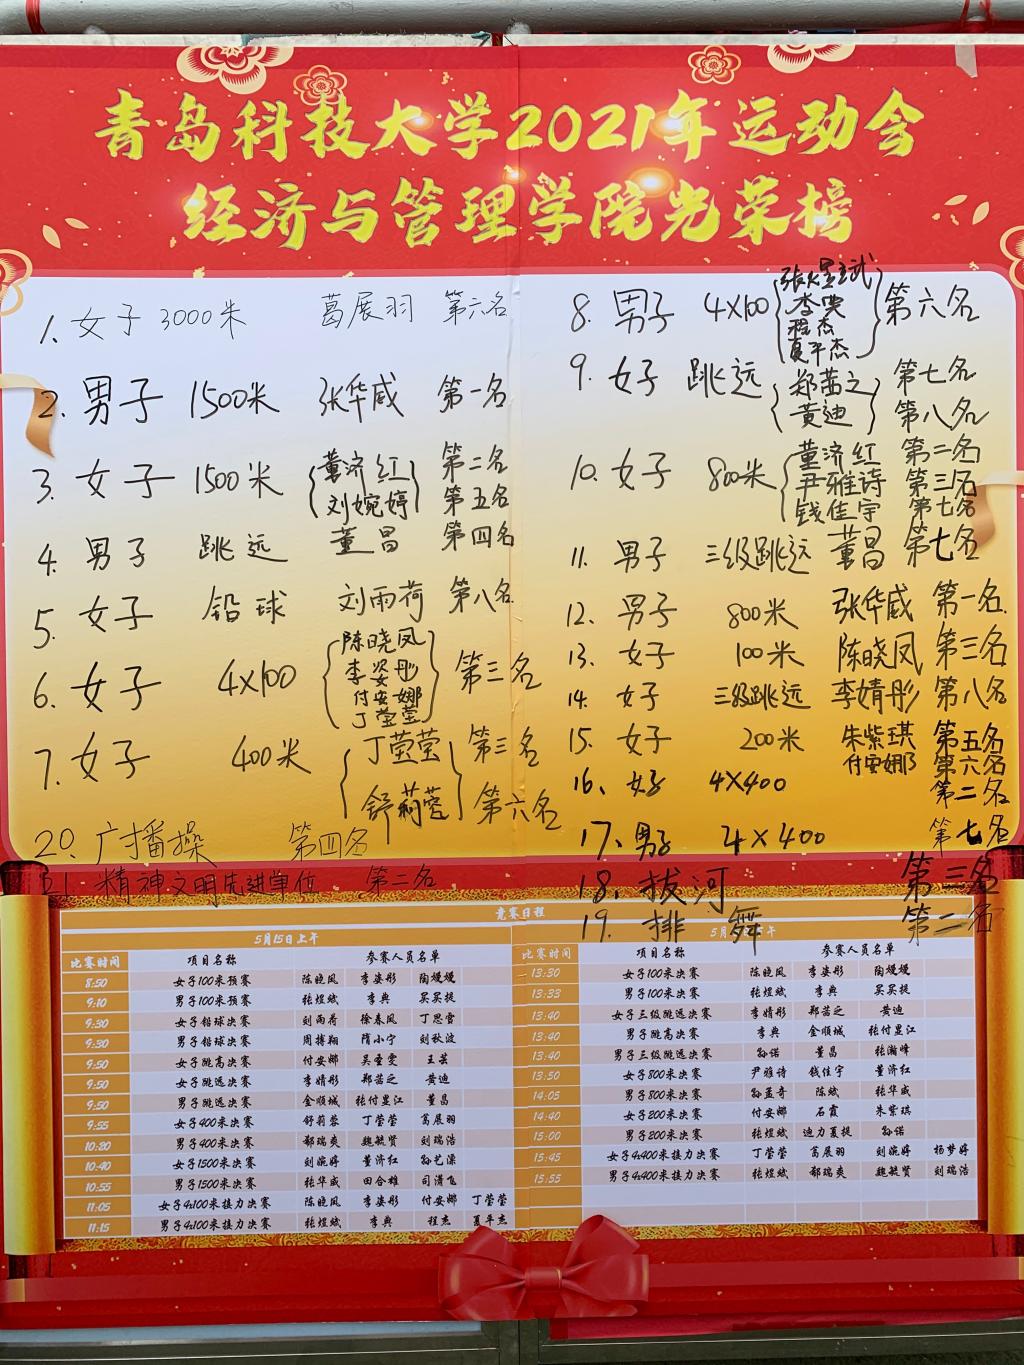 青岛科技大学2021年运动会
经济与管理学院光荣榜
1. 女子 3000米 葛展羽 第六名
2. 男子 1500米 张华威 第一名
3. 女子 1500米 董济红 第二名
刘婉婷 第五名
4. 男子 跳远 董昌 第四名
5. 女子 铅球 刘雨荷 第八名
6. 女子 4×100 陈晓凤 李姿彤 付安娜 丁莹莹 第三名
7. 女子 400米 丁莹莹 第三名
舒莉蓉 第六名
20. 广播操 第四名
21. 精神文明先进单位 第二名
8. 男子 4×100 张煜斌 李典 程杰 夏平杰 第六名
9. 女子 跳远 郑茜之 第七名
黄迪 第八名
10. 女子 800米 董济红 第二名
尹雅诗 第三名
钱佳宇 第七名
11. 男子 三级跳远 董昌 第七名
12. 男子 800米 张华威 第一名
13. 女子 100米 陈晓凤 第三名
14. 女子 三级跳远 李婧彤 第八名
15. 女子 200米 朱紫琪 第五名
付安娜 第六名
16. 女子 4×400 第二名
17. 男子 4×400 第七名
18. 拔河 第三名
19. 排舞 第二名
竞赛日程
5月15日上午
比赛时间 项目名称 参赛人员名单
8:50 女子100米预赛 陈晓凤 李姿彤 陶嫚嫚
9:10 男子100米预赛 张煜斌 李典 买买提
9:30 女子铅球决赛 刘雨荷 徐春凤 丁思雪
9:30 男子铅球决赛 周搏翔 隋小宁 刘秋波
9:50 女子跳高决赛 付安娜 吴圣雯 王芸
9:50 女子跳远决赛 李婧彤 郑茜之 黄迪
9:50 男子跳远决赛 金顺城 张付星江 董昌
9:55 女子400米决赛 舒莉蓉 丁莹莹 葛展羽
10:20 男子400米决赛 郗瑞爽 魏毓贤 刘瑞浩
10:40 女子1500米决赛 刘婉婷 董济红 孙艺潆
10:55 男子1500米决赛 张华威 田合雄 司清飞
11:05 女子4x100米接力决赛 陈晓凤 李姿彤 付安娜 丁莹莹
11:15 男子4x100米接力决赛 张煜斌 李典 程杰 夏平杰
5月
比赛时间 项目名称 参赛人员名单
13:30 女子100米决赛 陈晓凤 李姿彤 陶嫚嫚
13:33 男子100米决赛 张煜斌 李典 买买提
13:40 女子三级跳远决赛 李婧彤 郑茜之 黄迪
13:40 男子跳高决赛 李典 金顺城 张付星江
13:40 男子三级跳远决赛 孙诺 董昌 张瀚峰
13:50 女子800米决赛 尹雅诗 钱佳宇 董济红
14:05 男子800米决赛 孙孟奇 陈斌 张华威
14:40 女子200米决赛 付安娜 石霞 朱紫琪
15:00 男子200米决赛 张煜斌 迪力夏提 孙诺
15:45 女子4x400米接力决赛 丁莹莹 葛展羽 刘婉婷 杨梦婷
15:55 男子4x400米接力决赛 张煜斌 郗瑞爽 魏毓贤 刘瑞浩